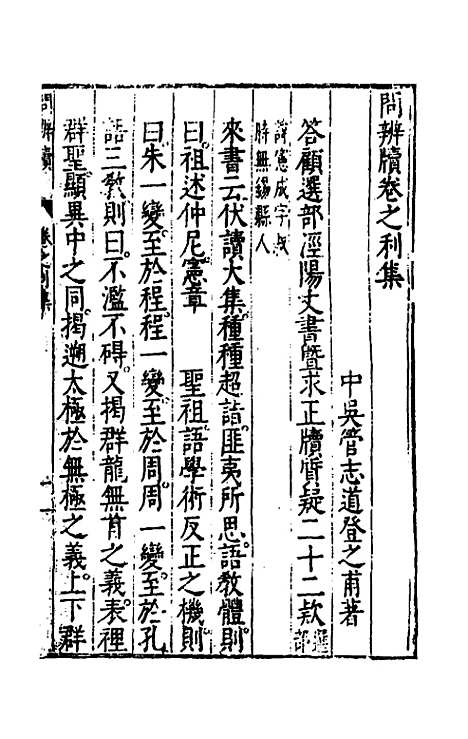 問辨牘卷之利集
中吳管志道登之甫著
答顧選部涇陽丈書暨求正牘質疑二十二款選部
諱憲成字叔
時無錫縣人
來書云伏讀大集種種超詣匪夷所思語教體則
曰祖述仲尼憲章　　聖祖語學術反正之機則
曰朱一變至於程程一變至於周周一變至於孔
語三教則曰不濫不礙又揭群龍無首之義表裡
群聖顯異中之同揭遡太極於無極之義上下群
問辨牘
卷之利集
一